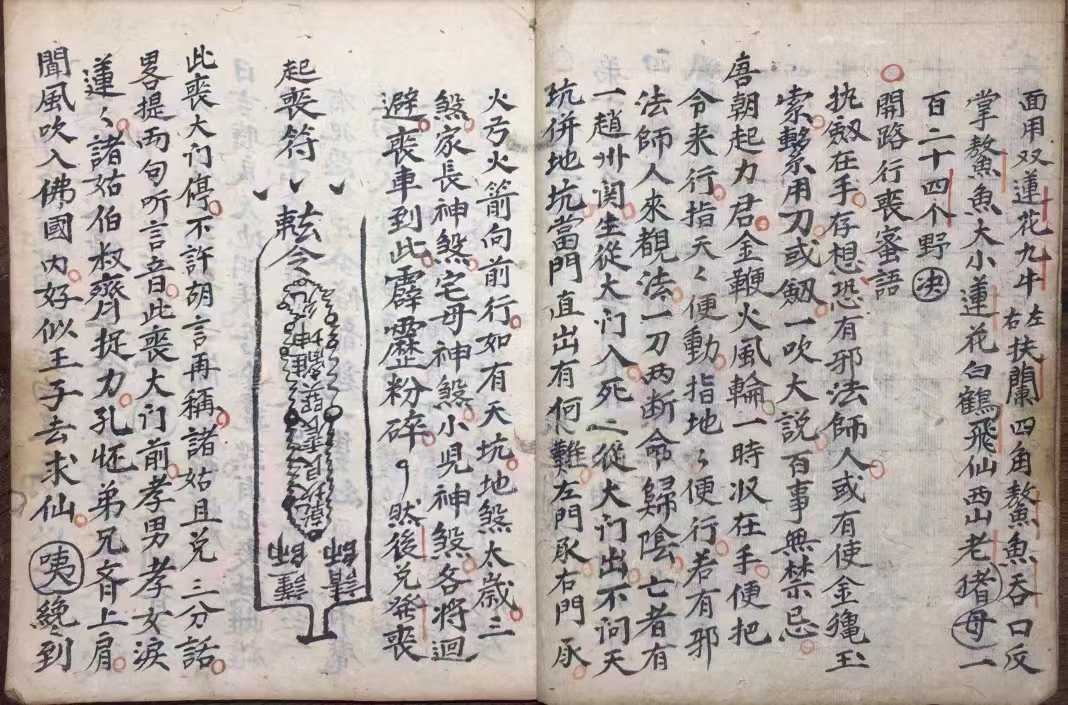 面用双蓮花九牛左右扶蘭四角鰲魚吞口反
掌鰲魚大小蓮花白鶴飛仙西山老猪母一
百二十四个野决
開路行喪蜜語
执劔在手存想恐有邪法師人或有使金䋲玉
索繫用刀或劔一吹大説百事無禁忌
唐朝起力君金鞭火風輪一時収在手便把
令来行指天〻便動指地〻便行若有邪
法師人來覩法一刀两断命歸陰亡者有
一趙州関生從大门入死〻從大门出不问天
坑併地坑當門直出有何難左門承右門承
火弓火箭向前行如有天坑地煞太歲三
煞家長神煞宅母神煞小児神煞各将迴
避喪車到此霹靂粉碎 然後兑発喪
起喪符
令
此喪大门停不許胡言再稱諸姑且兑三分話
畧提両句听言音此喪大门前孝男孝女淚
蓮〻諸姑伯叔齊捉力孔怀弟兄齊上肩
聞風吹入佛國内好似王子去求仙咦絻到